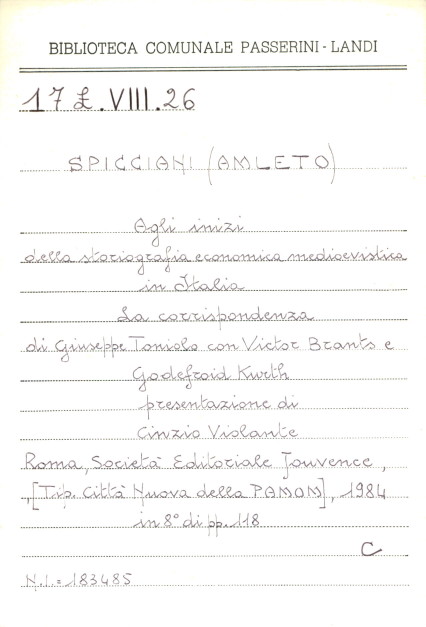 BIBLIOTECA COMUNALE PASSERINI-LANDI
17 £.VIII.26
SPICCIANI (AMLETO)
Agli inizi
della storiografia economica medioevistica
in Italia
La corrispondenza
di Giuseppe Toniolo con Victor Brants e
Godefroid Kurth
presentazione di
Cinzio Violante
Roma, Società Editoriale Jouvence,
[Tip. Città Nuova della PAMOM], 1984
in 8° di pp. 118
C
N.I. = 183485